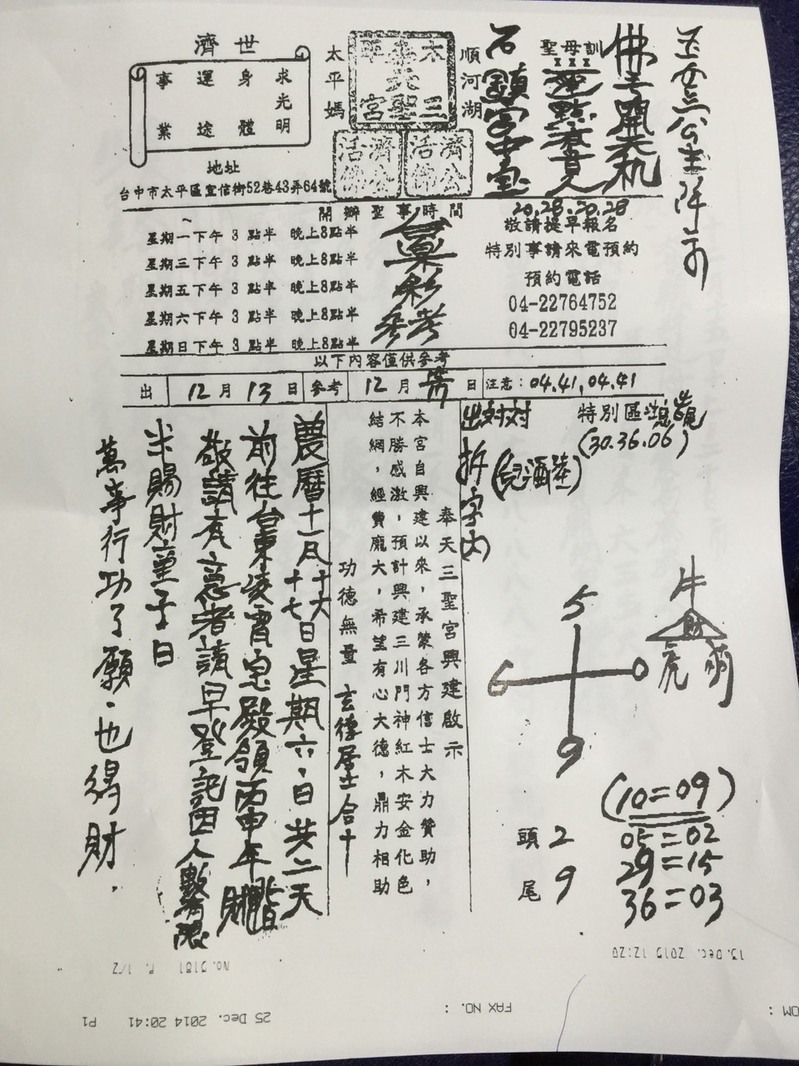 濟世
求光明
身體
運途
事業
地址
台中市太平區宜信街52巷43弄64號
太平媽
順河湖
太三
奉天聖
平宮
濟公活佛
濟公活佛
聖母訓
佛子開天机
20,28,20,28
敬請提早報名
特別事請來電預約
預約電話
04-22764752
04-22795237
開辦聖事時間
星期一下午3點半 晚上8點半
星期三下午3點半 晚上8點半
星期五下午3點半 晚上8點半
星期六下午3點半 晚上8點半
星期日下午3點半 晚上8點半
參考
以下內容僅供參考
出 12月13日 參考 12月 日 注意：04.41,04.41
特別區
(30.36.06)
出对对
拆字內
奉天三聖宮興建啟示
本宮自興建以來，承蒙各方信士大力贊助，
不勝感激，預計興建三川門神紅木安金化色
結網，經費龐大，希望有心大德，鼎力相助
功德無量 玄德居士合十
農曆十一月十六
十七日星期六.日共二天
前往台東凌霄宝殿領丙申年財
敬請有意者請早登記因人數有限
米賜財童子日
萬事行功了願.也得財.
5
6 0
9
牛
財
虎
頭 2
尾 9
(10=09)
05=02
29=15
36=03
13. Dec. 2015 12:20
No. 5181 P. 1/2
25 Dec. 2014 20:41 P1
FAX NO. :
OM :